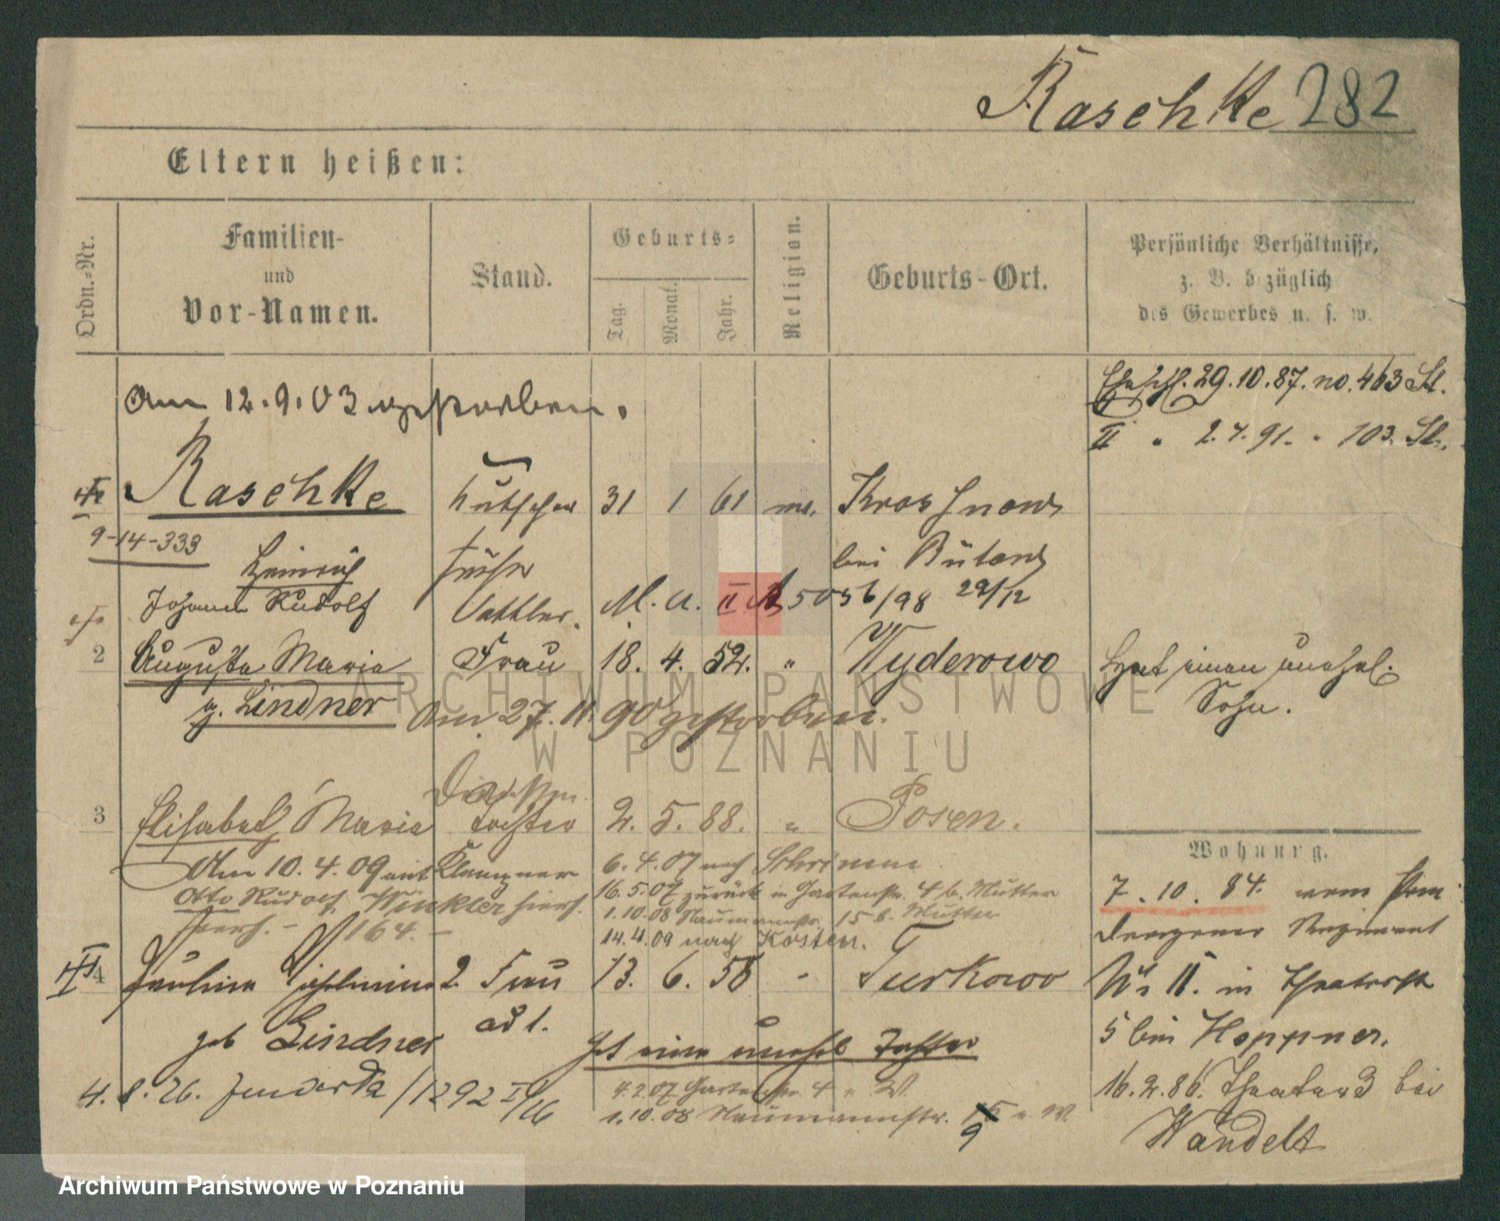 Raschke 282
Eltern heißen:
Ordn.-Nr.
Familien-
und
Vor-Namen.
Stand.
Geburts-
Tag.
Monat.
Jahr.
Religion.
Geburts-Ort.
Persönliche Verhältnisse,
z. B. bezüglich
des Gewerbes u. s. w.
Am 12.9.03 gestorben.
29.10.87. no. 463 St.
II " 2.7.91. " 103. St.
Raschke Kutscher 31 1 61
9-14-333
Heinrich früher
Johann Rudolf M. u. II 5056/98 29/12
2 Auguste Maria Frau 18. 4. 52. " Wyderowo Hat einen unehel.
g. Lindner Am 27.11.90 gestorben. Sohn.
3 Elisabeth Maria Tochter 2. 5. 88. " Posen.
Wohnung.
Am 10.4.09 mit Klempner 6.4.07 nach Schrimm
Otto Rudolf Winkler hiers. 16.5.07 zurück in Gartenstr. 4 b. Mutter
164. 1.10.08 Naumannstr. 15 b. Mutter
14.4.09 nach Kosten.
7.10.84. vom
Regiment
4 Pauline Wilhelmine 2. Frau 13. 6. 58 " Turkowo No II. in Theaterstr
geb Lindner ad 1. 5 bei Hoppner.
Hat eine unehel Tochter
4.8.26. 1292
4.2.07 Gartenstr. 4 v. W.
1.10.08 Naumannstr. 15 v. W.
9
16.2.86. Theater 3 bei
Wandelt
ARCHIWUM PAŃSTWOWE
W POZNANIU
Archiwum Państwowe w Poznaniu